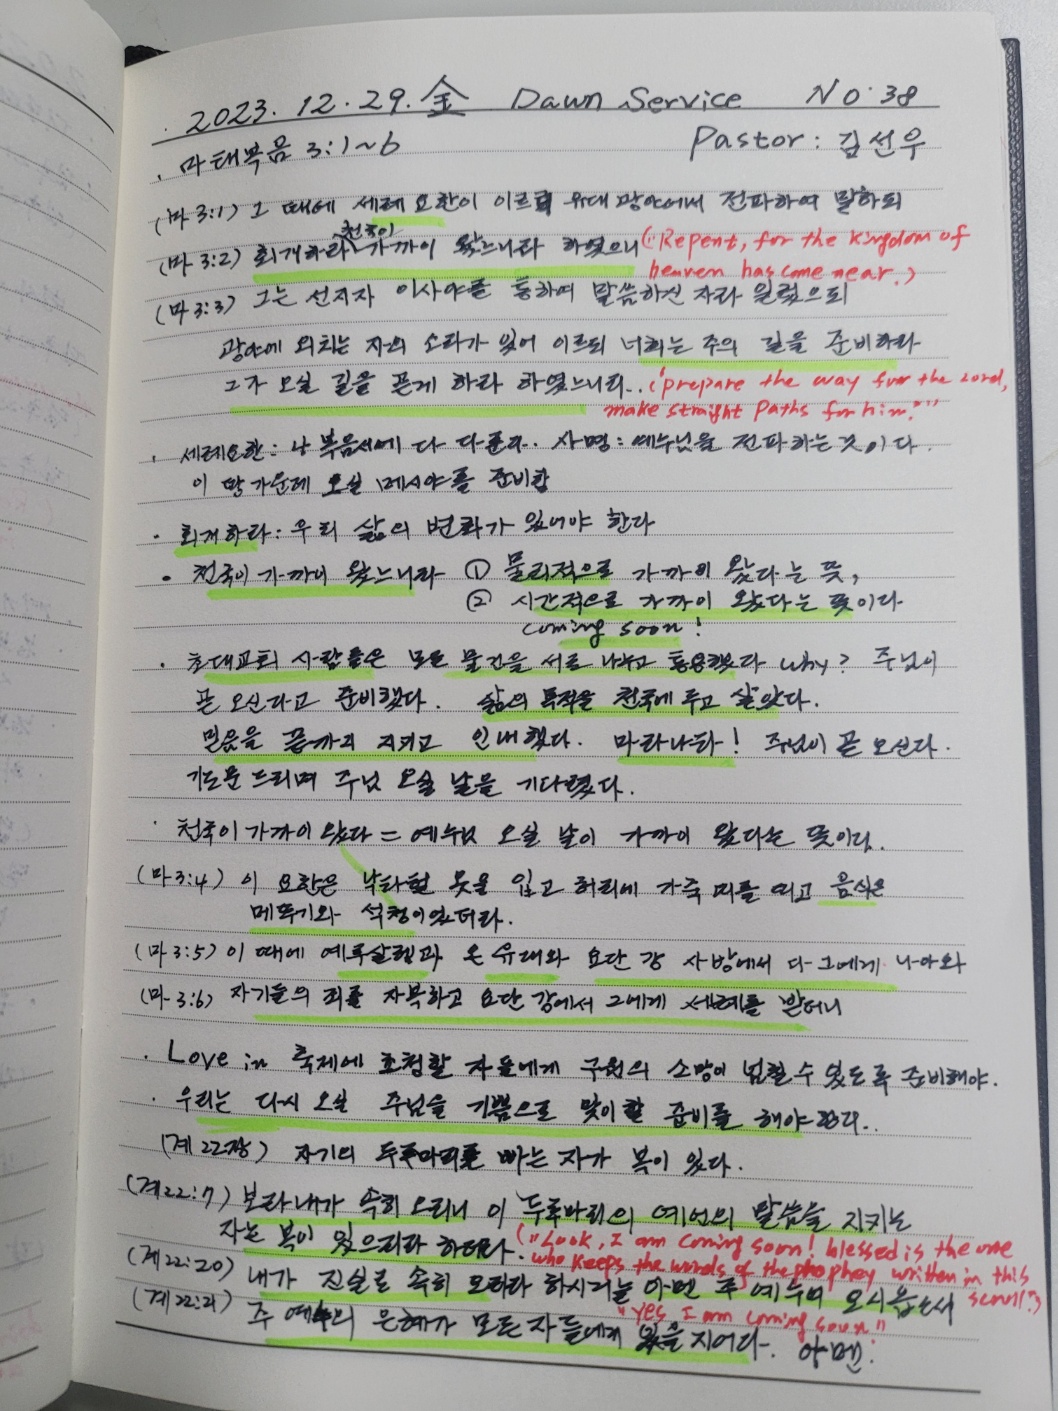 2023. 12. 29. 金 Dawn Service No. 38
Pastor : 김선우
. 마태복음 3:1~6
(마 3:1) 그 때에 세례 요한이 이르러 유대 광야에서 전파하여 말하되
(마 3:2) 회개하라 천국이 가까이 왔느니라 하였으니 ("Repent, for the kingdom of
heaven has come near.)
(마 3:3) 그는 선지자 이사야를 통하여 말씀하신 자라 일렀으되
광야에 외치는 자의 소리가 있어 이르되 너희는 주의 길을 준비하라
그가 오실 길을 곧게 하라 하였느니라.. ("prepare the way for the Lord,
make straight paths for him.""
. 세례요한 : 4 복음서에 다 다룬다.. 사명 : 예수님을 전파하는 것이다.
이 땅 가운데 오실 메시야를 준비함
• 회개하라 : 우리 삶의 변화가 있어야 한다
• 천국이 가까이 왔느니라 ① 물리적으로 가까이 왔다는 뜻,
② 시간적으로 가까이 왔다는 뜻이다
coming soon!
. 초대교회 사람들은 모든 물건을 서로 나누고 통용했다 why? 주님이
곧 오신다고 준비했다. 삶의 목적을 천국에 두고 살았다.
믿음을 끝까지 지키고 인내했다. 마라나타! 주님이 곧 오신다.
기도문 드리며 주님 오실 날을 기다렸다.
. 천국이 가까이 왔다 = 예수님 오실 날이 가까이 왔다는 뜻이다.
(마 3:4) 이 요한은 낙타털 옷을 입고 허리에 가죽 띠를 띠고 음식은
메뚜기와 석청이었더라.
(마 3:5) 이 때에 예루살렘과 온 유대와 요단 강 사방에서 다 그에게 나아와
(마 3:6) 자기들의 죄를 자복하고 요단 강에서 그에게 세례를 받더니
. Love in 축제에 초청할 자들에게 구원의 소망이 넘칠 수 있도록 준비해야.
. 우리는 다시 오실 주님을 기쁨으로 맞이할 준비를 해야 한다..
(계 22장) 자기의 두루마리를 빠는 자가 복이 있다.
(계 22:7) 보라 내가 속히 오리니 이 두루마리의 예언의 말씀을 지키는
자는 복이 있으리라 하더라. ("Look, I am coming soon! blessed is the one
who keeps the words of the phophey written in this
scroll")
(계 22:20) 내가 진실로 속히 오리라 하시거늘 아멘 주 예수여 오시옵소서
"Yes I am coming soon"
(계 22:21) 주 예수의 은혜가 모든 자들에게 있을 지어다. 아멘.